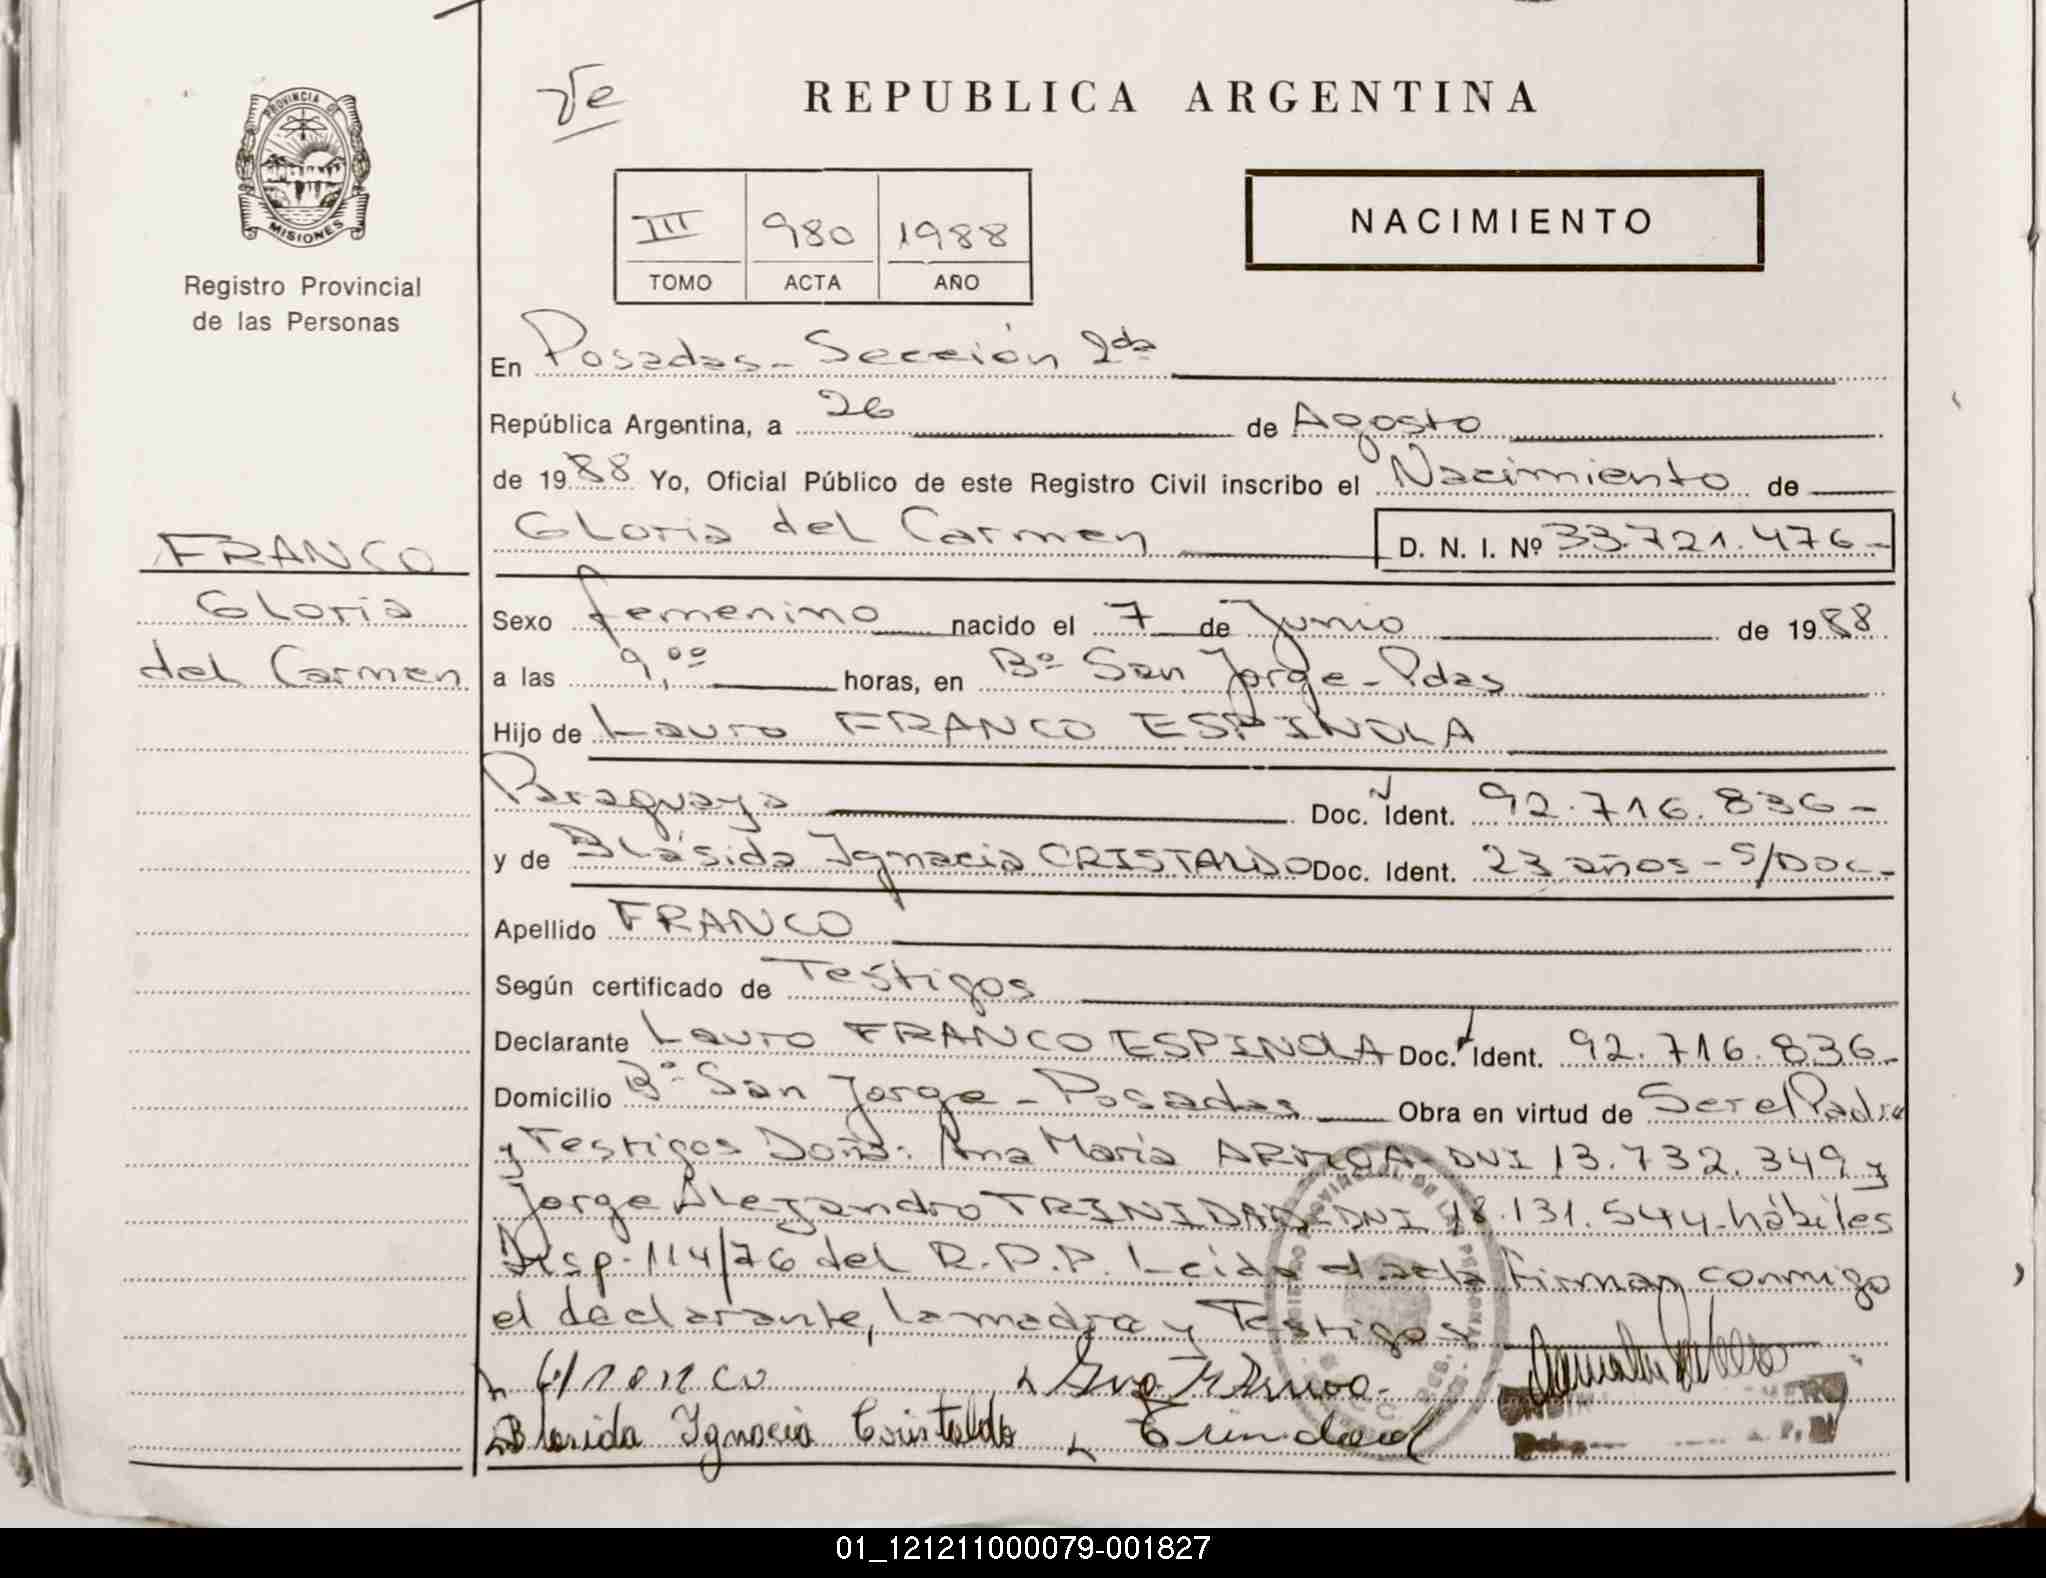 PROVINCIA DE
MISIONES
Registro Provincial
de las Personas
FRANCO
Gloria
del Carmen
REPUBLICA ARGENTINA
III 980 1988
TOMO ACTA AÑO
NACIMIENTO
En Posadas - Sección 2da
República Argentina, a 26 de Agosto
de 1988 Yo, Oficial Público de este Registro Civil inscribo el Nacimiento de
Gloria del Carmen D. N. I. Nº 33.721.476-
Sexo femenino nacido el 7 de Junio de 1988
a las 9,00 horas, en Bº San Jorge - Pdas
Hijo de Lauro FRANCO ESPINOLA
Paraguaya Doc. Ident. 92.716.836-
y de Blásida Ignacia CRISTALDO Doc. Ident. 23 años - S/Doc-
Apellido FRANCO
Según certificado de Testigos
Declarante Lauro FRANCO ESPINOLA Doc. Ident. 92.716.836-
Domicilio Bº San Jorge - Posadas Obra en virtud de Ser el Padre
y Testigos Doña: Ana María DNI 13.732.349 y
Jorge Alejandro TRINIDAD - DNI 18.131.544 - hábiles
Disp. 114/76 del R.P.P. Leida el acta firman conmigo
el declarante, la madre y Testigos
Blasida Ignacia Cristaldo Trinidad
01_121211000079-001827